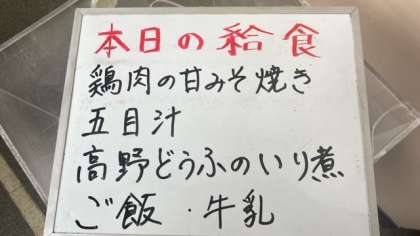 本日の給食
鶏肉の甘みそ焼き
五目汁
高野どうふのいり煮
ご飯・牛乳